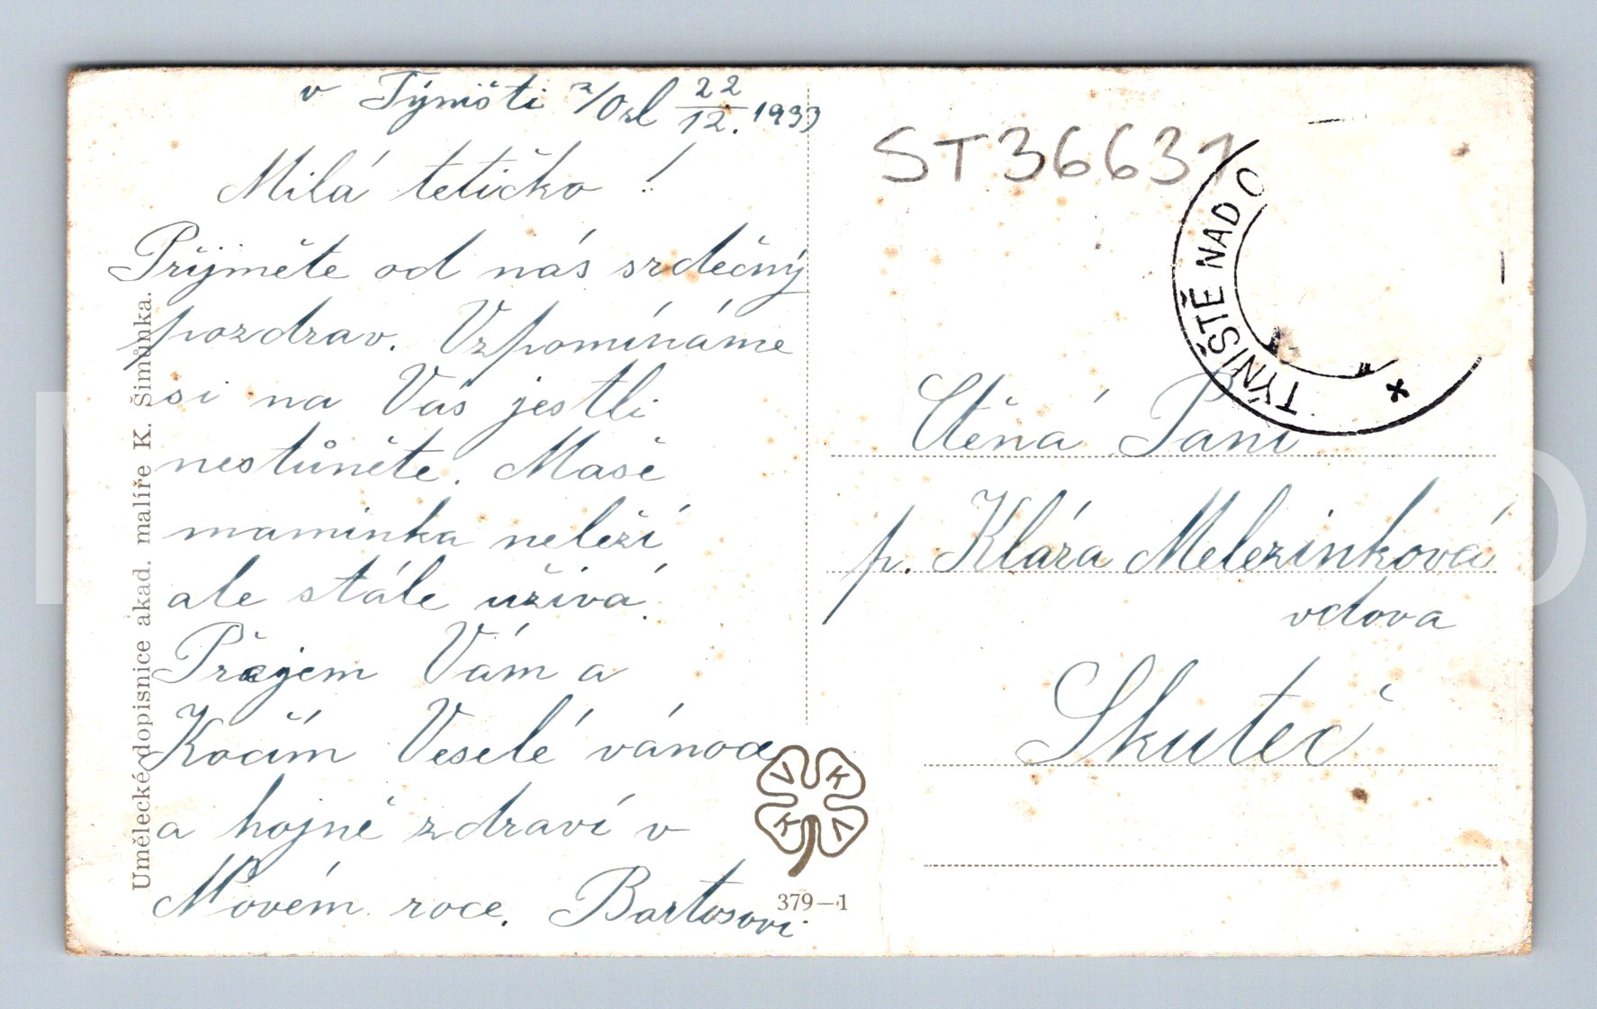 v Týništi n/Orl 22/12. 1933
Milá tetičko!
Přijměte od nás srdečný
pozdrav. Vzpomínáme
si na Vás jestli
nestůněte. Naše
maminka neleží
ale stále užívá.
Přejem Vám a
Kočím Veselé vánoce
a hojně zdraví v
Novém roce. Bartošovi
Umělecké dopisnice akad. malíře K. Šimůnka.
V K
K V
379–1
ST36631
TÝNIŠTĚ NAD O
Ctěná Paní
p. Klára Melezinková
vdova
Skuteč